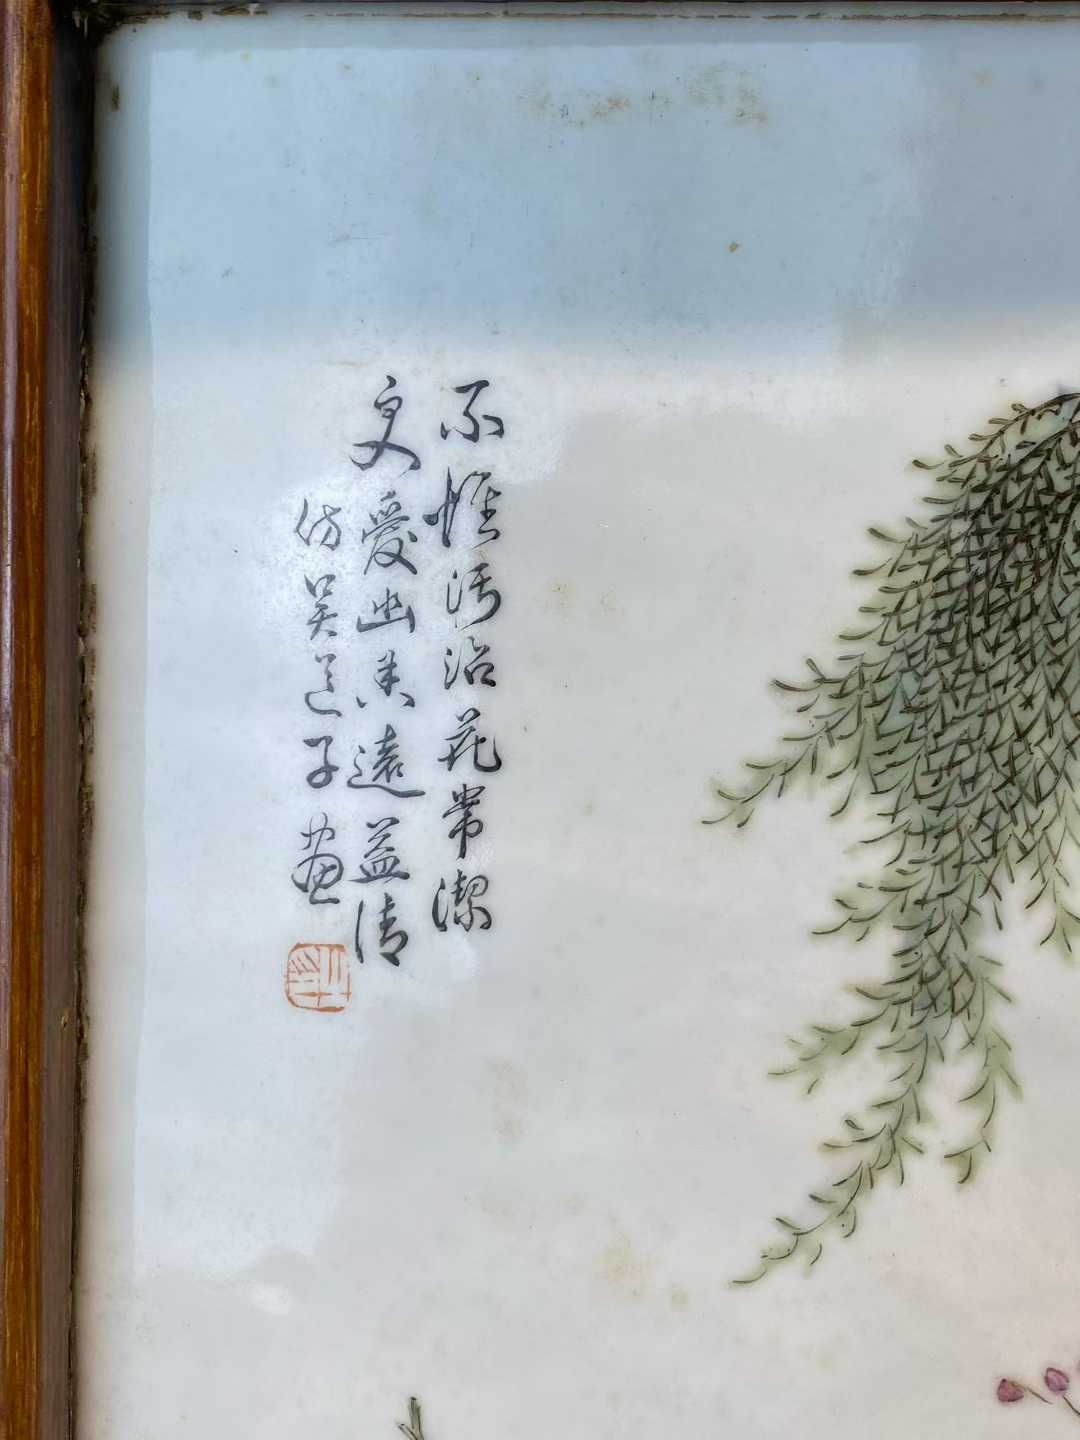 不惟污沼花常潔
更愛幽香遠益清
仿吴道子画